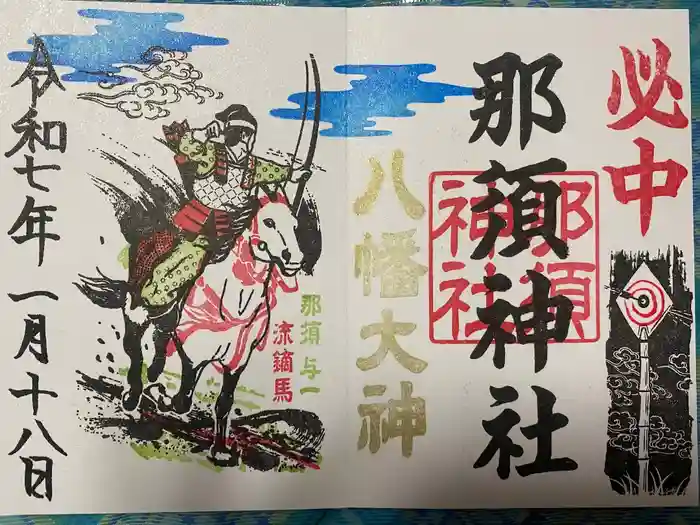 必中
那須神社
那須
神社
八幡大神
那須与一
流鏑馬
令和七年一月十八日